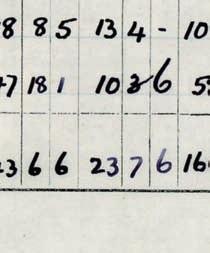 8 8 5 13 4 - 10
7 18 1 10 6 5
23 6 6 23 7 6 16